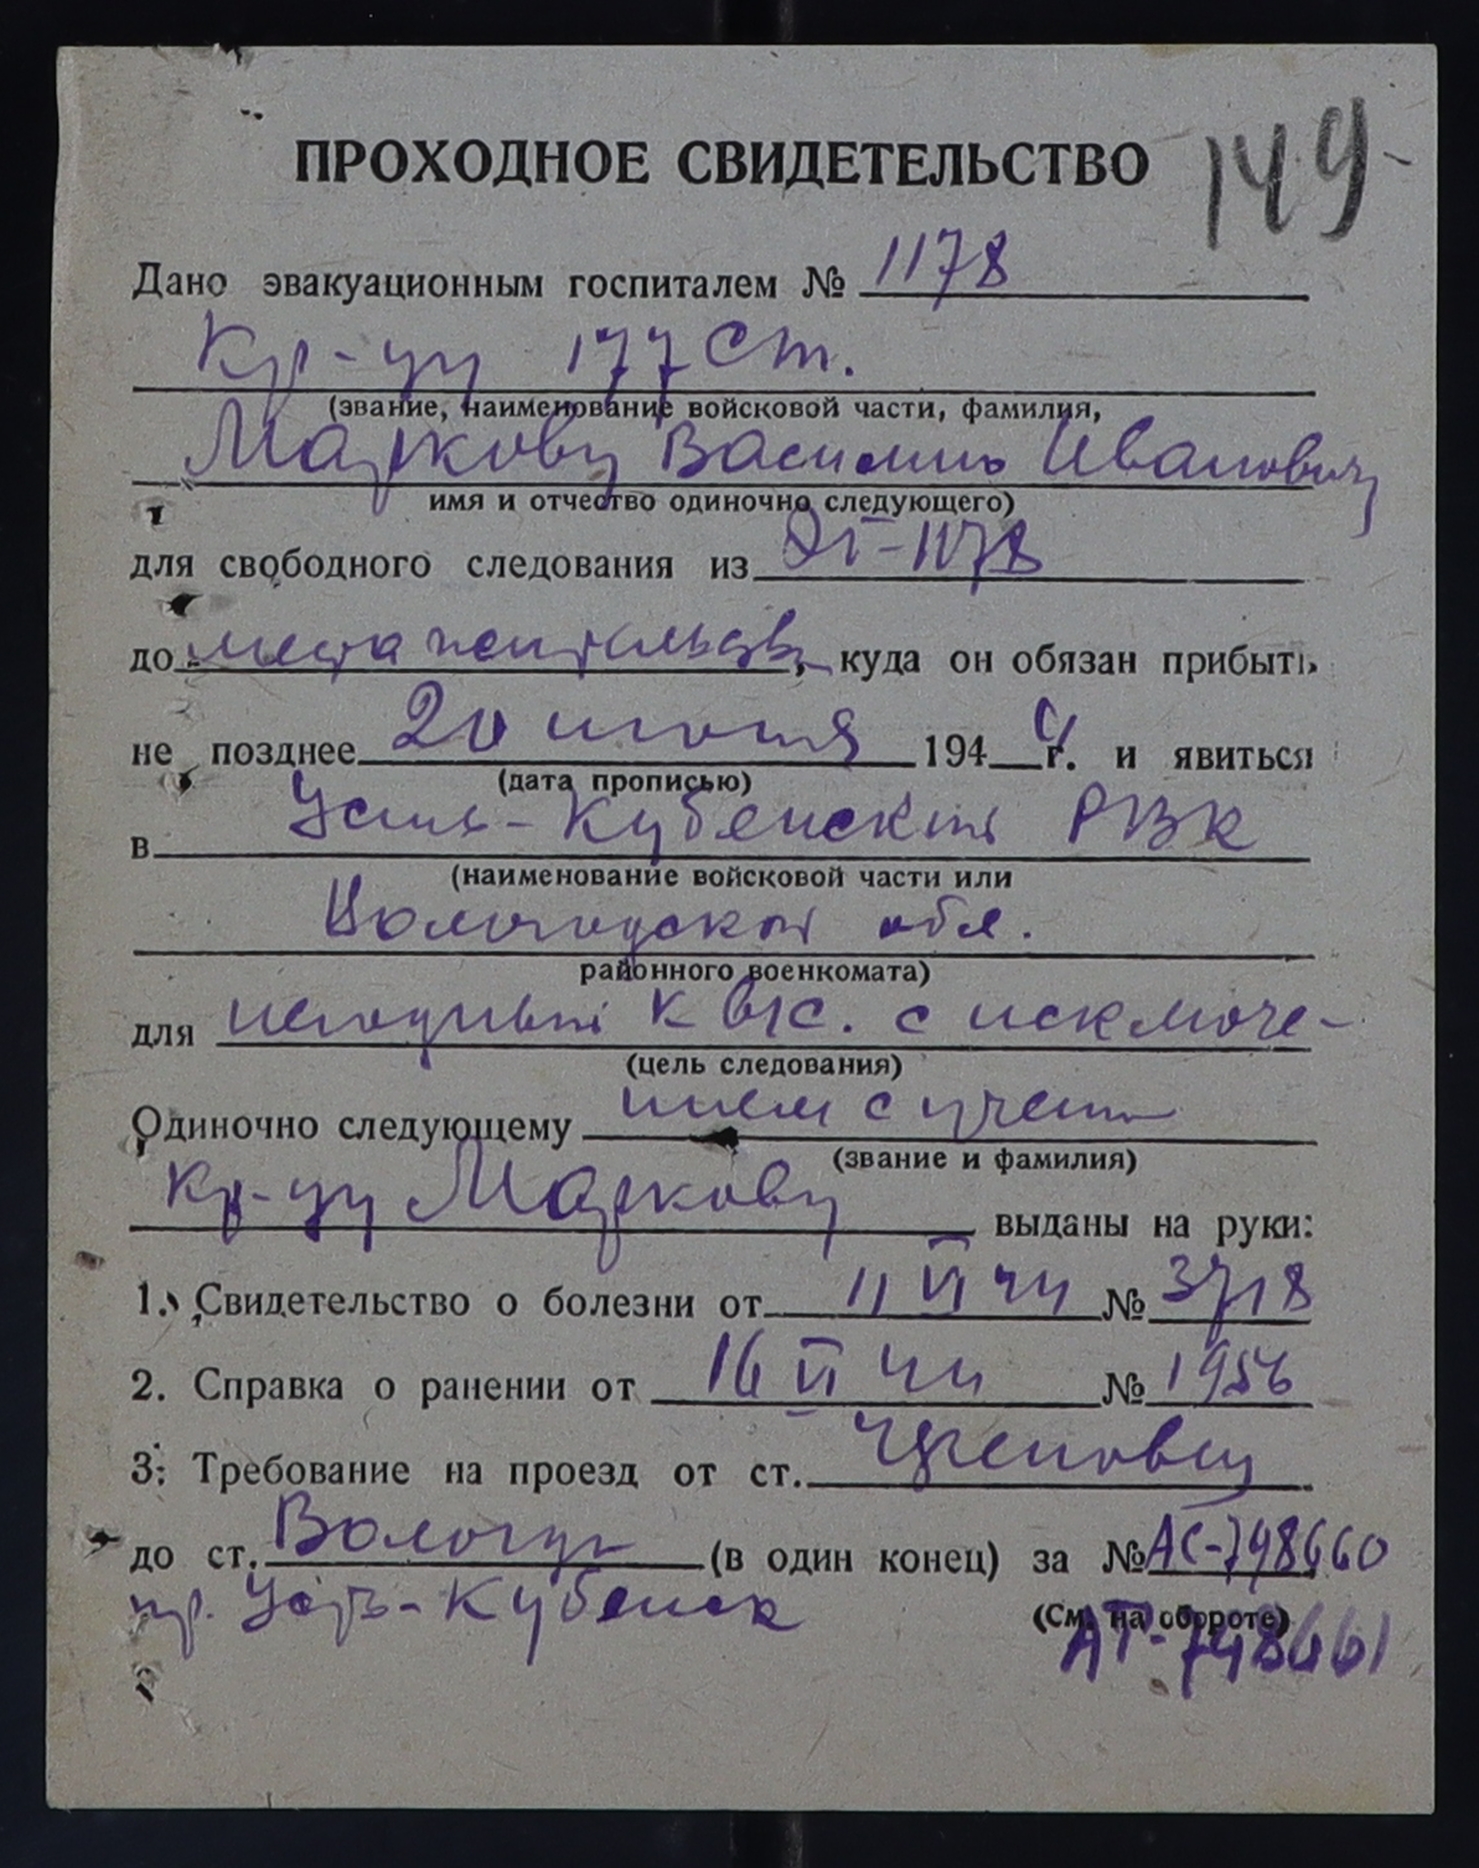 149
ПРОХОДНОЕ СВИДЕТЕЛЬСТВО
Дано эвакуационным госпиталем № 1178
Кр-цу 177 Ст.
(звание, наименование войсковой части, фамилия,
Маркову Василию Ивановичу
имя и отчество одиночно следующего)
для свободного следования из ЭГ-1178
до места жительства, куда он обязан прибыть
не позднее 20 июня 1944 г. и явиться
(дата прописью)
в Усть-Кубенский РВК
(наименование войсковой части или
Вологодской обл.
районного военкомата)
для негодный к в/с. с исключе-
(цель следования)
нием с учета
Одиночно следующему
(звание и фамилия)
кр-цу Маркову выданы на руки:
1. Свидетельство о болезни от 11 VI 44 № 3718
2. Справка о ранении от 16 VI 44 № 1956
3. Требование на проезд от ст. Череповец
до ст. Вологда (в один конец) за № АС-748660
пр. Усть-Кубенск (См. на обороте)
АТ-748661